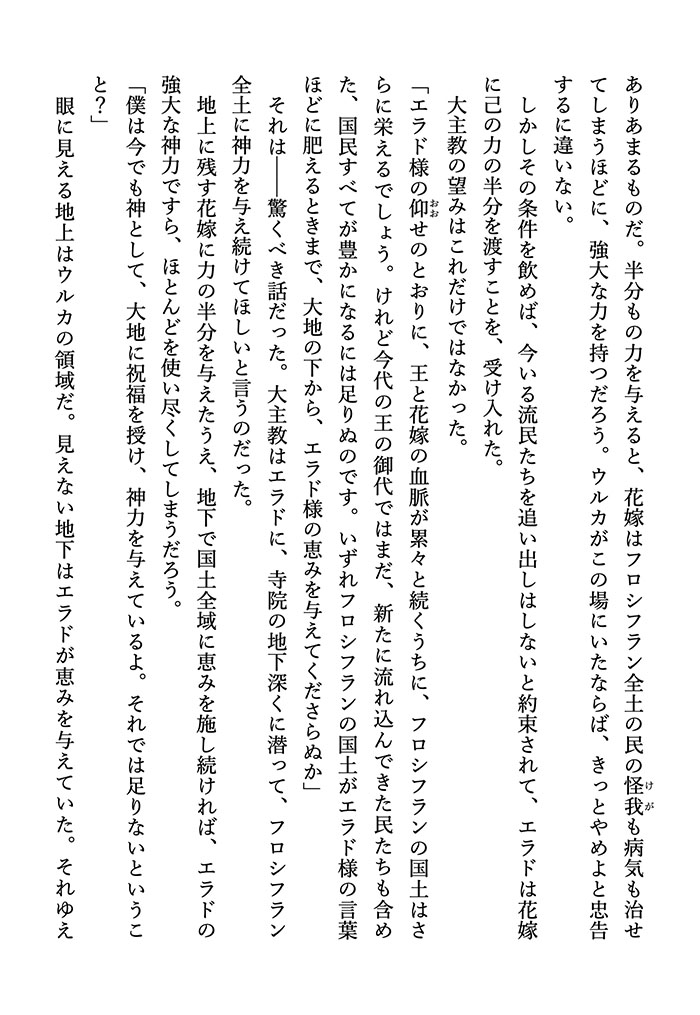 ありあまるものだ。半分もの力を与えると、花嫁はフロシフラン全土の民の怪我も病気も治せ
てしまうほどに、強大な力を持つだろう。ウルカがこの場にいたならば、きっとやめよと忠告
するに違いない。
しかしその条件を飲めば、今いる流民たちを追い出しはしないと約束されて、エラドは花嫁
に己の力の半分を渡すことを、受け入れた。
大主教の望みはこれだけではなかった。
「エラド様の仰せのとおりに、王と花嫁の血脈が累々と続くうちに、フロシフランの国土はさ
らに栄えるでしょう。けれど今代の王の御代ではまだ、新たに流れ込んできた民たちも含め
た、国民すべてが豊かになるには足りぬのです。いずれフロシフランの国土がエラド様の言葉
ほどに肥えるときまで、大地の下から、エラド様の恵みを与えてくださらぬか」
それは――驚くべき話だった。大主教はエラドに、寺院の地下深くに潜って、フロシフラン
全土に神力を与え続けてほしいと言うのだった。
地上に残す花嫁に力の半分を与えたうえ、地下で国土全域に恵みを施し続ければ、エラドの
強大な神力ですら、ほとんどを使い尽くしてしまうだろう。
「僕は今でも神として、大地に祝福を授け、神力を与えているよ。それでは足りないというこ
と？」
眼に見える地上はウルカの領域だ。見えない地下はエラドが恵みを与えていた。それゆえ